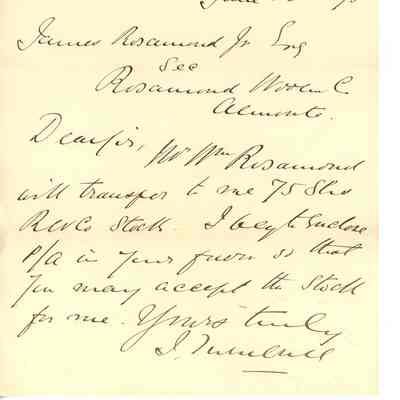 James Rosamond Jr Esq
Sec
Rosamond Woolen Co
Almonte.
Dear Sir,
Mr Wm Rosamond
will transfer to me 75 Shs
RWCo Stock. I beg to Enclose
P/a in your favor so that
You may accept the Stock
for me. Yours truly
J. Turnbull